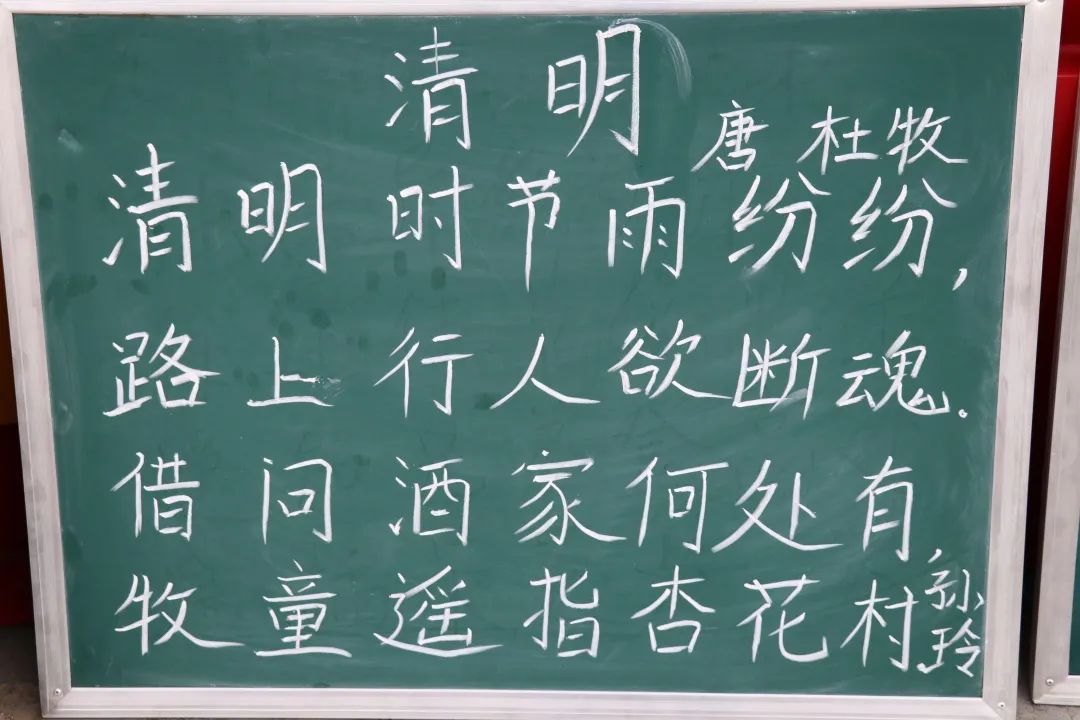 清明
唐 杜牧
清明时节雨纷纷,
路上行人欲断魂.
借问酒家何处有,
牧童遥指杏花村
孙玲